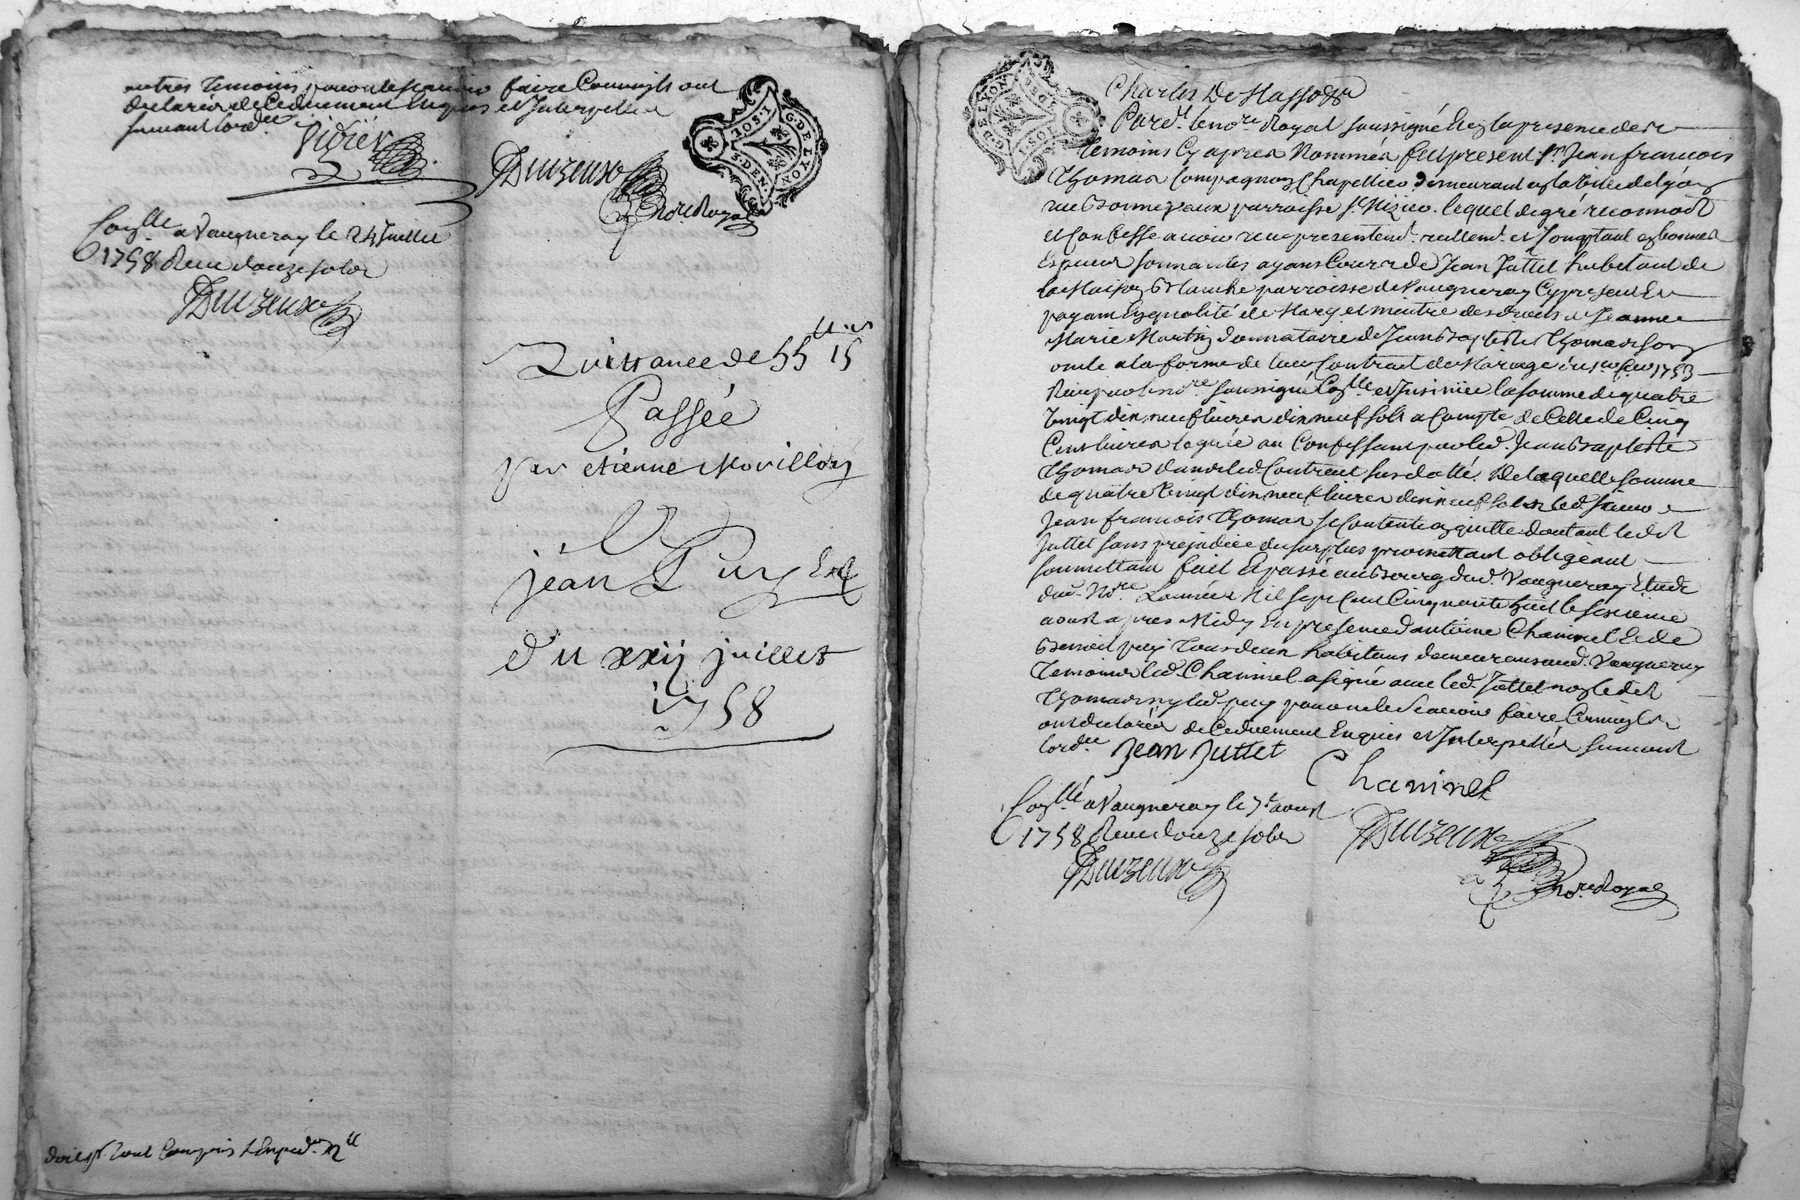 autres temoins pour ne le scavoir faire Comme ils ont
declaré de Ce duement Enquis et Interpellés
suivant lord.ce
Vidier
Duizeux
no.re Royal
G. DE LYON
1. SOL.
S. DEN.
Con.llé a Vaugneray le 24 Juillet
1758 Reçu douze sols
Duizeux
Quittance de 55 ll 15 s
Passée
par etienne Morillon
A
jean Puy
du xxij juillet
1758
doit tout Compris l'Exped.on
G. DE LYON
Charles De Masso &a
Pard.t le no.re Royal soussigné En la presence des
temoins Cy apres Nommés fut present S.r Jean francois
Thomas Compagnon Chapellier demeurant en la ville de Lyon
rue Bonneveaux parroisse S.t Nizier. lequel de gré reconnoit
et Confesse avoir reçu presentem.t reellem.t et Comptant en bonnes
Especes sonnantes ayans Cours de Jean Juttet habitant de
la Maison Blanche parroisse de Vaugneray Cy present Et
payant En qualité de Mary et maitre des droits de Jeanne
Marie Martin donnataire de Jean Baptiste Thomas son
oncle a la forme de leur Contrat de Mariage du 1753
Reçu par le no.re soussigné Con.llé et Insinué la somme de quatre
Vingt dix neuf livres dix neuf sols a Compte de Celle de Cinq
Cent livres leguée au Confessant par led. Jean Baptiste
Thomas dans led. Contrat susdatté. De laquelle somme
de quatre Vingt dix neuf livres dix neuf sols led. sieur
Jean francois Thomas se Contente en quitte d'autant ledit
Juttet sans prejudice du surplus promettant obligeant
soumettant fait Et passé au Bourg dud. Vaugneray Etude
dud. No.re L'année Mil sept Cent Cinquante huit le sixieme
aoust apres Midy En presence d'antoine Chaminel Et de
Benoit puy tous deux habitans demeurans aud. Vaugneray
temoins led. Chaminel a signé avec led. Juttet non ledit
Thomas ny led. puy pour ne le Scavoir faire Comme ils
ont declaré de Ce duement Enquis et Interpellés suivant
lord.ce Jean Juttet
Chaminel
Con.llé a Vaugneray le 7e aoust
1758 Reçu douze sols
Duizeux
Duizeux
no.re Royal